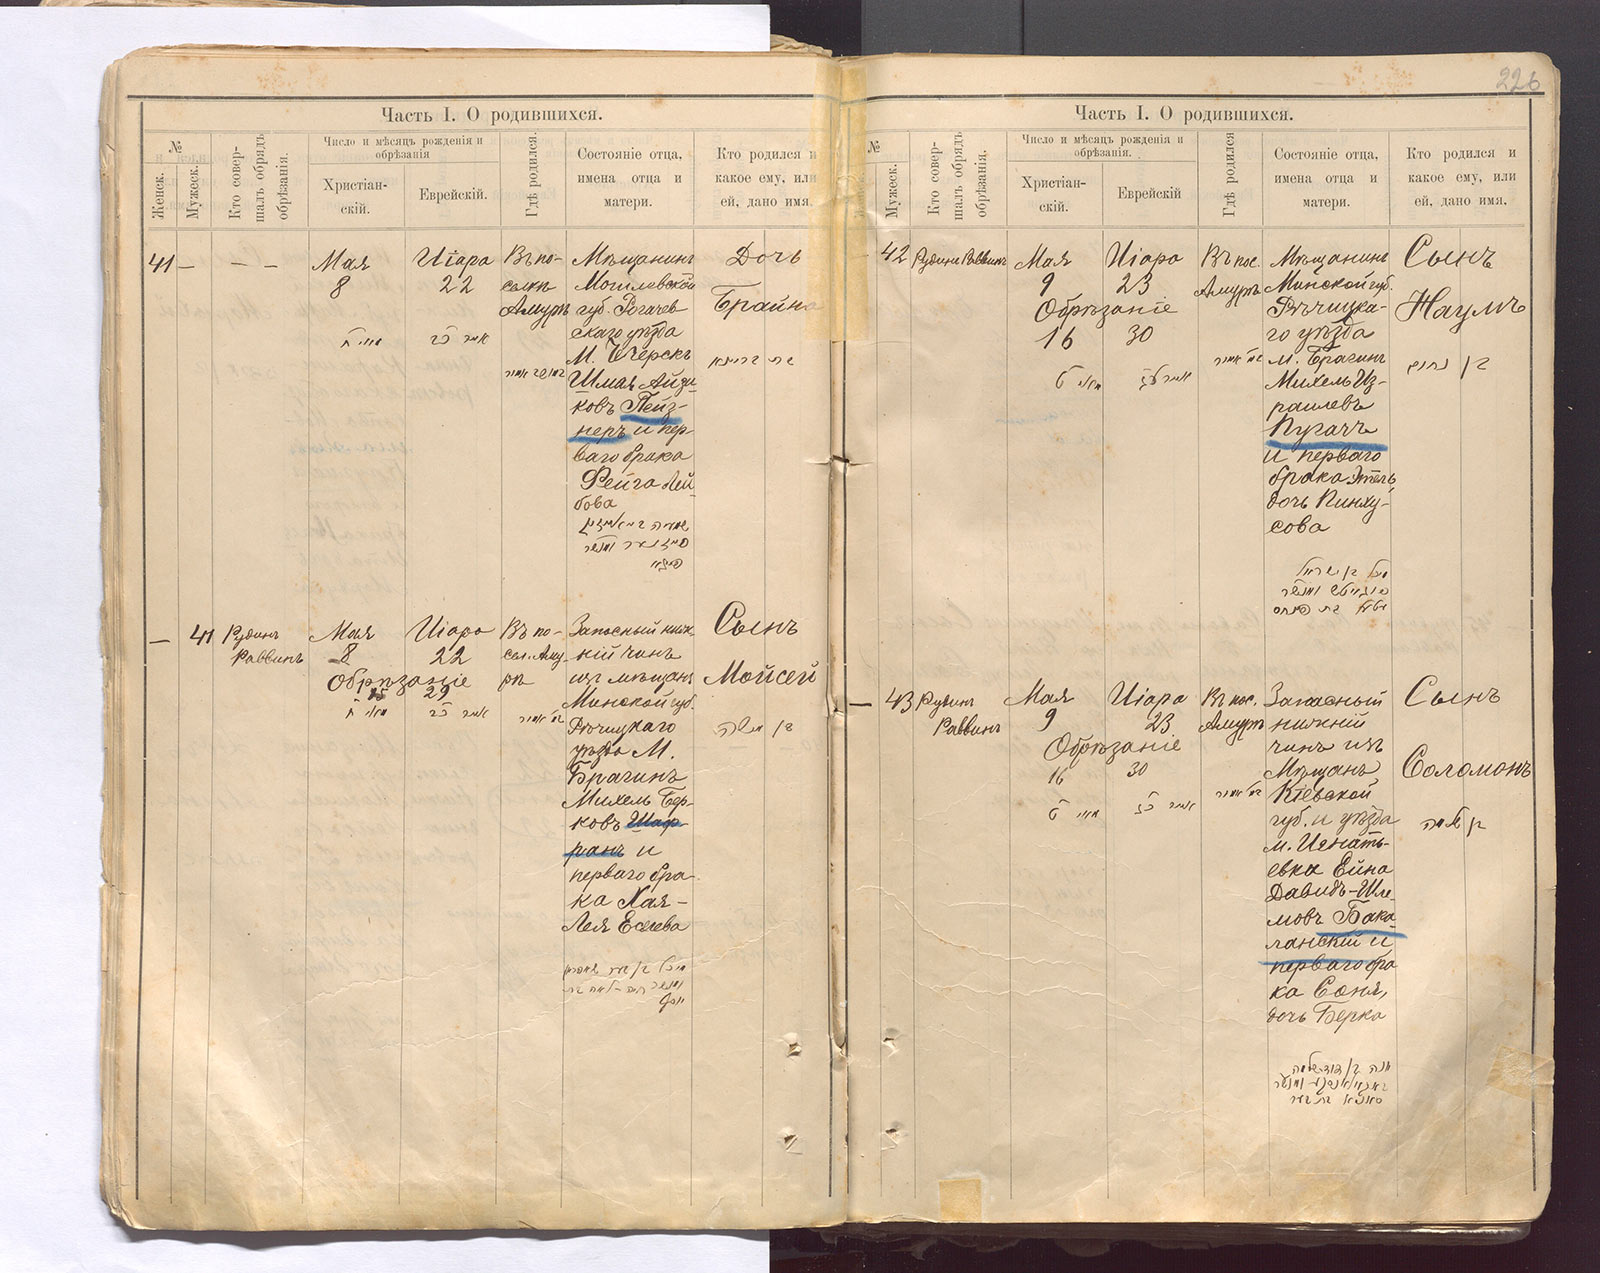 226
Часть I. О родившихся.
№
Женск.
Мужеск.
Кто совер-
шалъ обрядъ
обрѣзанія.
Число и мѣсяцъ рожденія и
обрѣзанія
Христіан-
скій.
Еврейскій.
Гдѣ родился.
Состояніе отца,
имена отца и
матери.
Кто родился и
какое ему, или
ей, дано имя.
41 — — —
Мая
8
Иіара
22
Въ по-
селкѣ
Амуръ
Мѣщанинъ
Могилевской
губ. Рогачев
скаго уѣзда
М. Чечерскъ
Шмая Айзи-
ковъ Пейз-
неръ и пер-
ваго брака
Фейга Лей
бова
Дочь
Брайна
— 41
Рудинъ
Раввинъ
Мая
8
Иіара
22
Обрѣзаніе
15 29
Въ по-
сел. Аму-
рѣ
Запасный ниж-
ній чинъ
изъ мѣщанъ
Минской губ.
Рѣчицкаго
уѣзда М.
Брагинъ
Михель Бер-
ковъ Шаф-
ранъ и
перваго бра-
ка Хая-
Лея Есеева
Сынъ
Мойсей
בן משה
Часть I. О родившихся.
№
Мужеск.
Кто совер-
шалъ обрядъ
обрѣзанія.
Число и мѣсяцъ рожденія и
обрѣзанія.
Христіан-
скій.
Еврейскій
Гдѣ родился
Состояніе отца,
имена отца и
матери.
Кто родился и
какое ему, или
ей, дано имя.
— 42
Рудинъ Раввинъ
Мая
9
Иіара
23
Обрѣзаніе
16 30
Въ пос.
Амуръ
Мѣщанинъ
Минской губ.
Рѣчицка-
го уѣзда
м. Брагинъ
Михель Из-
раилевъ
Пугачъ
и перваго
брака Этель,
дочь Пинху-
сова
Сынъ
Наумъ
בן נחום
מיכל בן ישראל
— 43
Рудинъ
Раввинъ
Мая
9
Иіара
23
Обрѣзаніе
16 30
Въ пос.
Амуръ
Запасный
нижній
чинъ изъ
Мѣщанъ
Кіевской
губ. и уѣзда
м. Игнатъ-
евка Ейна
Давидъ-Шле-
мовъ Бака-
ланскій и
перваго бра
ка Соня,
дочь Берка
Сынъ
Соломонъ
בן שלמה